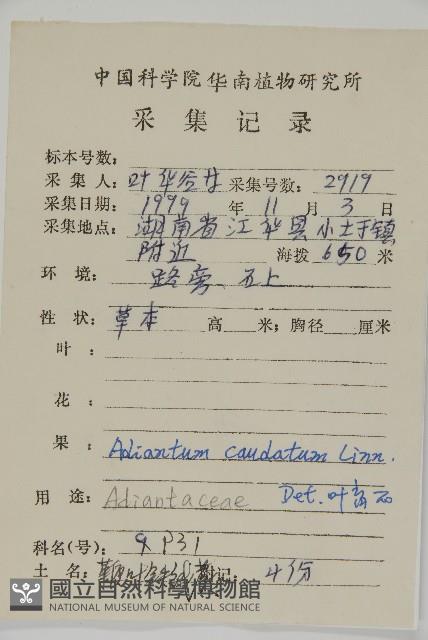 中国科学院华南植物研究所
采集记录
标本号数:
采集人:叶华谷 采集号数: 2919
采集日期: 1999 年 11 月 3 日
采集地点: 湖南省江华县小土于镇
附近 海拨 650 米
环境: 路旁、石上
性状: 草本 高 米; 胸径 厘米
叶:
花:
果: Adiantum caudatum Linn.
用途: Adiantaceae Det. 叶
科名(号): P31
土名: 记: 4份
國立自然科學博物館
NATIONAL MUSEUM OF NATURAL SCIENCE